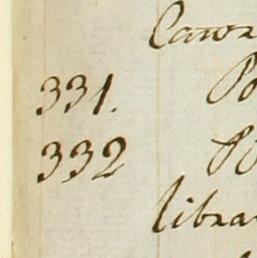 Cawr
331. Po
332
libra